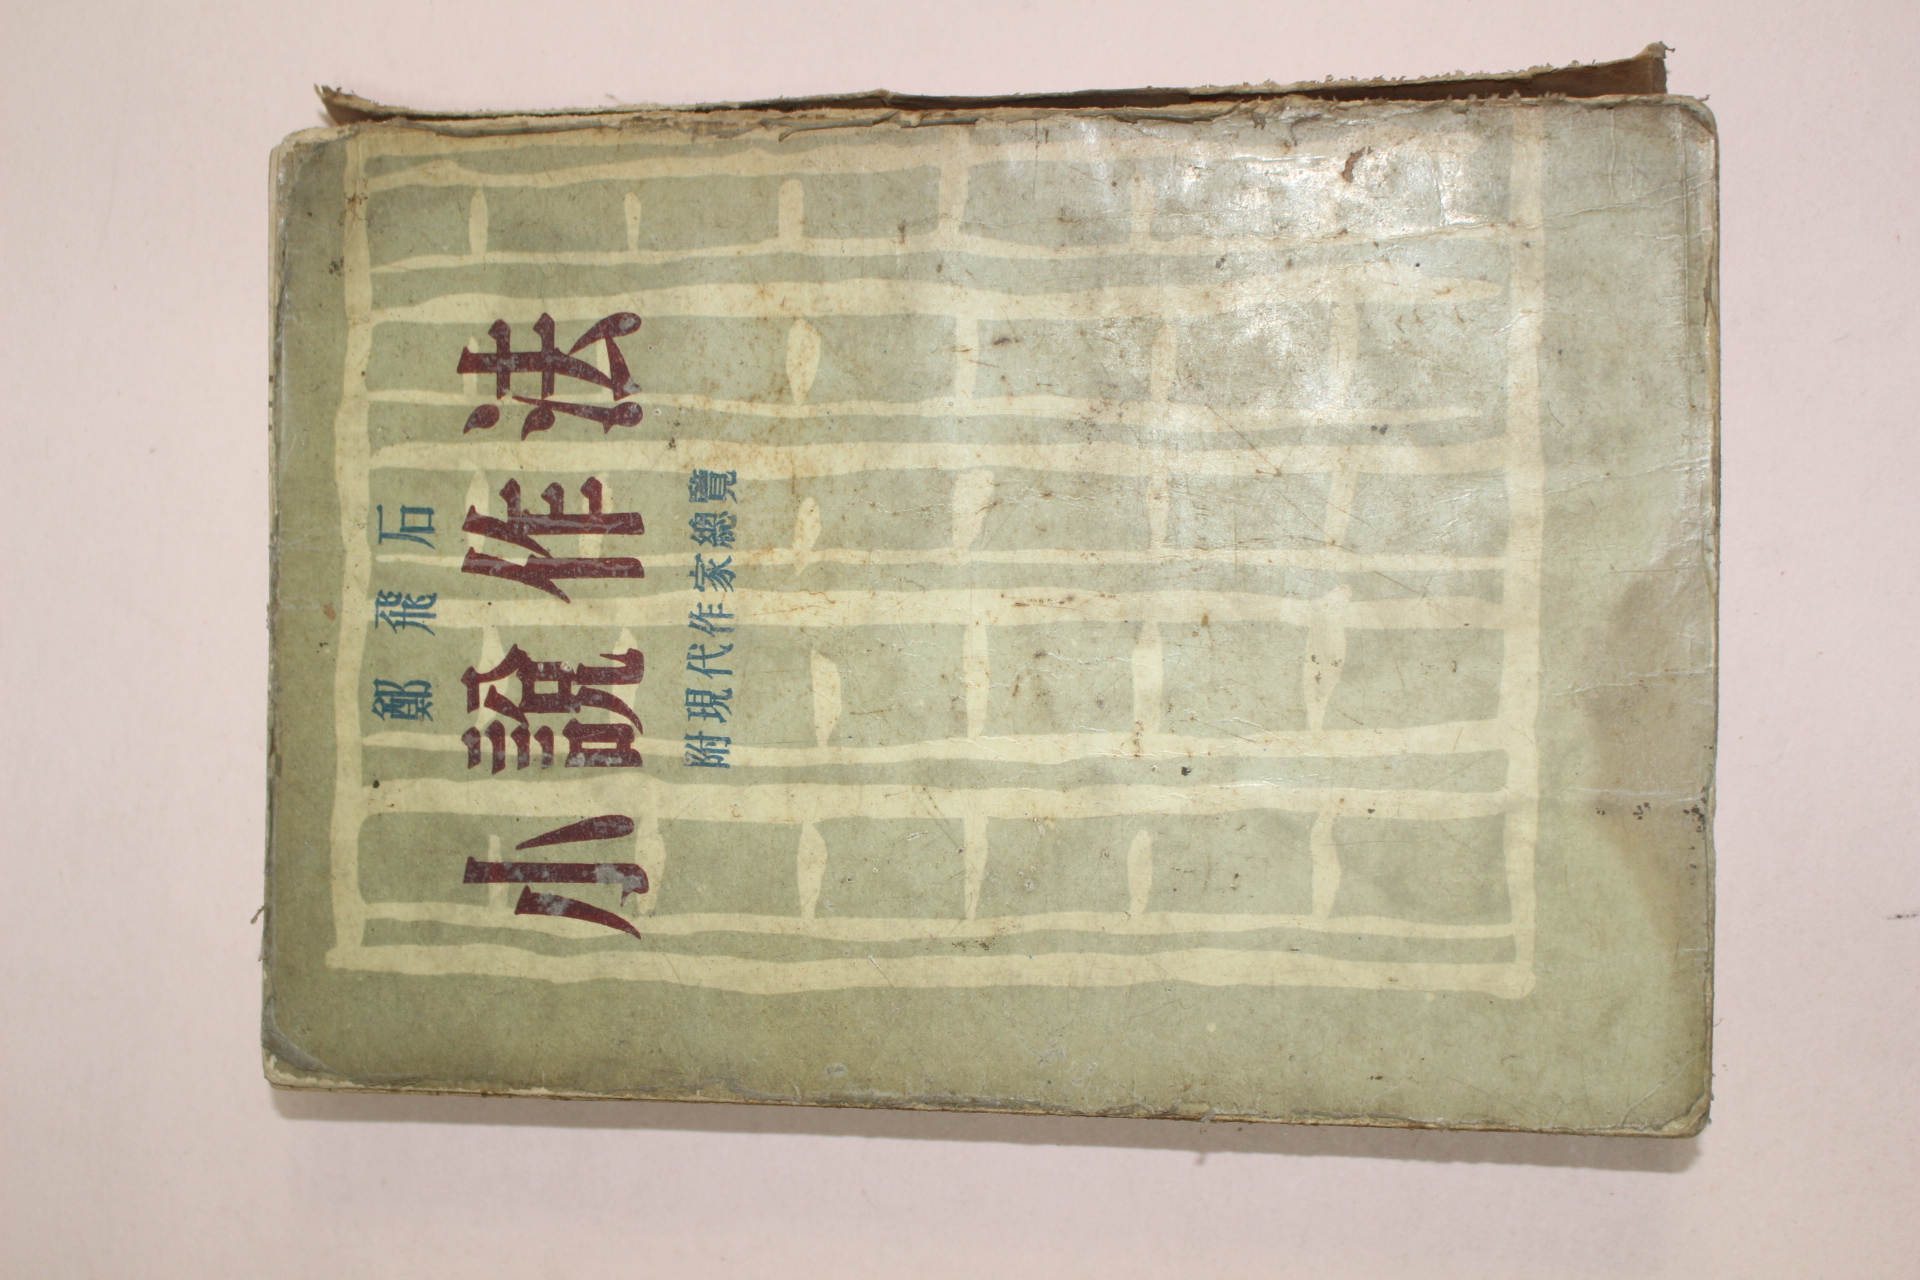 鄭飛石
小說作法
附現代作家總覽